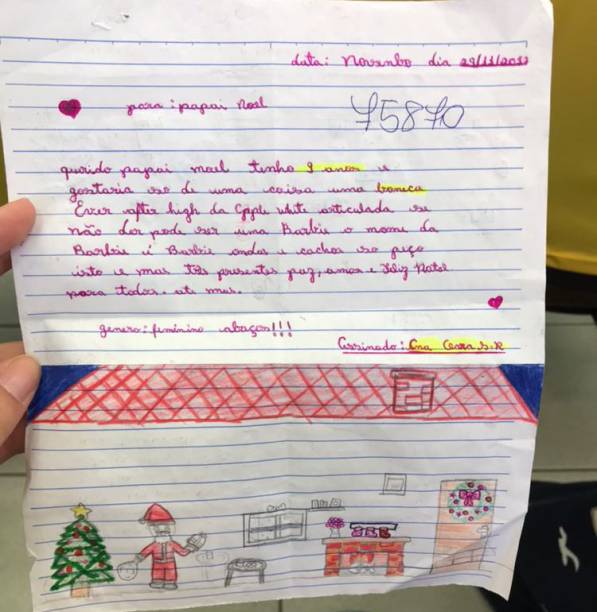 data: Novenbo dia 29/11/201
para: papai Noel
75870
querido papai noel tenho 9 anos e
gostaria so de uma coisa uma boneca
Ever after high da Apple White articulada se
não der pode ser uma Barbie o nome da
Barbie é Barbie ondas e cachos so peço
isto e mas três presentes paz, amor e feliz Natal
para todos. até mas.
genero: feminino abaços!!!
Assinado: Ana S.R